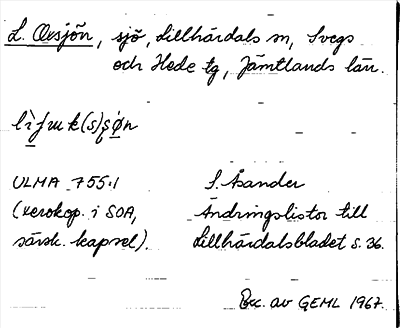 L. Oxsjön, sjö, Lillhärdals sn, Svegs
och Hede tg, Jämtlands län.
ULMA 755:1 S. Åsander
(xerokop. i SOA, Ändringslistor till
särsk. kapsel). Lillhärdalsbladet s. 36.
Exc. av GEML 1967.